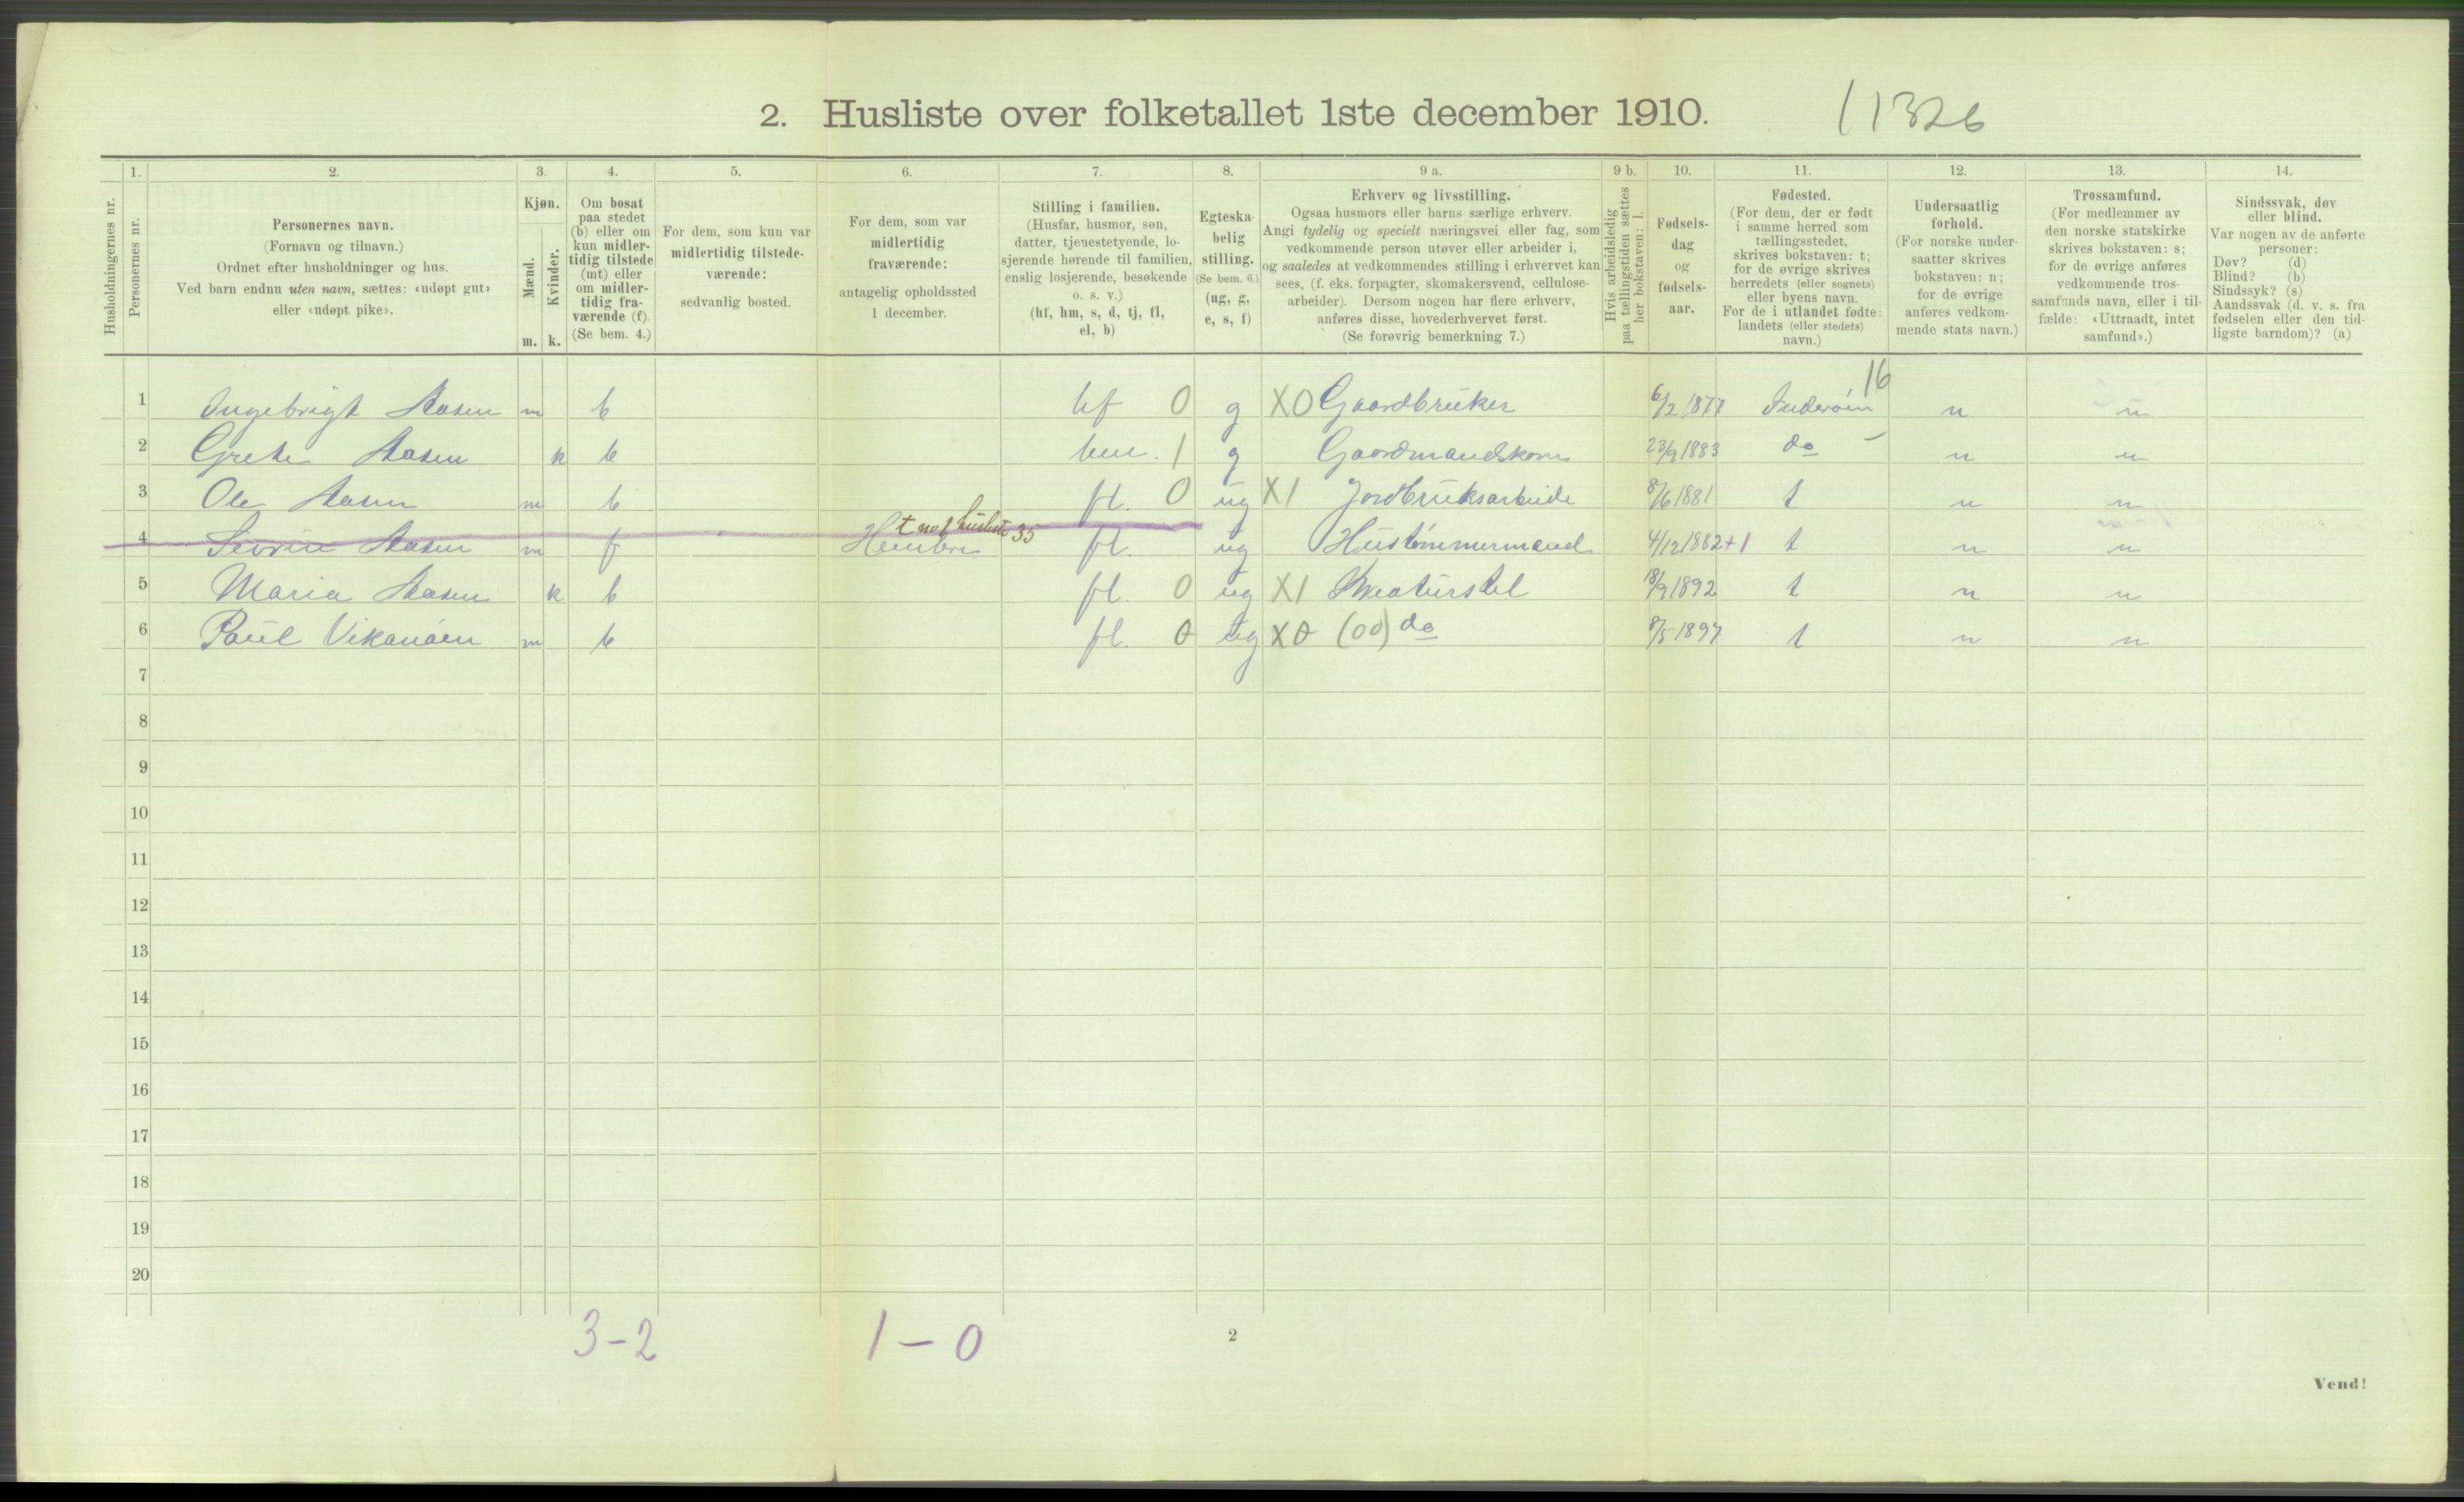 2. Husliste over folketallet 1ste december 1910.
11326
Husholdningernes nr.
1.
Personernes nr.
2.
Personernes navn.
(Fornavn og tilnavn.)
Ordnet efter husholdninger og hus.
Ved barn endnu uten navn, sættes: «udøpt gut»
eller «udøpt pike».
3.
Kjøn.
Mænd.
Kvinder.
m. k.
4.
Om bosat
paa stedet
(b) eller om
kun midler-
tidig tilstede
(mt) eller
om midler-
tidig fra-
værende (f).
(Se bem. 4.)
5.
For dem, som kun var
midlertidig tilstede-
værende:
sedvanlig bosted.
6.
For dem, som var
midlertidig
fraværende:
antagelig opholdssted
1 december.
7.
Stilling i familien.
(Husfar, husmor, søn,
datter, tjenestetyende, lo-
sjerende hørende til familien,
enslig losjerende, besøkende
o. s. v.)
(hf, hm, s, d, tj, fl,
el, b)
8.
Egteska-
belig
stilling.
(Se bem. 6.)
(ug, g,
e, s, f)
9 a.
Erhverv og livsstilling.
Ogsaa husmors eller barns særlige erhverv.
Angi tydelig og specielt næringsvei eller fag, som
vedkommende person utøver eller arbeider i,
og saaledes at vedkommendes stilling i erhvervet kan
sees, (f. eks. forpagter, skomakersvend, cellulose-
arbeider). Dersom nogen har flere erhverv,
anføres disse, hovederhvervet først.
(Se forøvrig bemerkning 7.)
9 b.
Hvis arbeidsledig
paa tællingstiden sættes
her bokstaven: l.
10.
Fødsels-
dag
og
fødsels-
aar.
11.
Fødested.
(For dem, der er født
i samme herred som
tællingsstedet,
skrives bokstaven: t;
for de øvrige skrives
herredets (eller sognets)
eller byens navn.
For de i utlandet fødte:
landets (eller stedets)
navn.)
12.
Undersaatlig
forhold.
(For norske under-
saatter skrives
bokstaven: n;
for de øvrige
anføres vedkom-
mende stats navn.)
13.
Trossamfund.
(For medlemmer av
den norske statskirke
skrives bokstaven: s;
for de øvrige anføres
vedkommende tros-
samfunds navn, eller i til-
fælde: «Uttraadt, intet
samfund».)
14.
Sindssvak, døv
eller blind.
Var nogen av de anførte
personer:
Døv? (d)
Blind? (b)
Sindssyk? (s)
Aandssvak (d. v. s. fra
fødselen eller den tid-
ligste barndom)? (a)
16
1 Ingebrigt Aasen m b hf 0 g X0 Gaardbruker 6/2 1877 Inderøen n n
2 Grete Aasen k b hm. 1 g Gaardmandskone 23/9 1883 do - n n
3 Ole Aasen m b fl. 0 ug X1 Jordbruksarbeide 8/6 1881 t n n
t paa husliste 35
4 Aasen m f fl. ug Hustømmermand 4/12 1882 +1 t n n
5 Maria Aasen k b fl. 0 ug X1 Kreaturstel 18/9 1892 t n n
6 Paul Vikanåen m b fl. 0 ug X0 (00) do 8/5 1897 t n n
7
8
9
10
11
12
13
14
15
16
17
18
19
20
3-2 1-0
2
Vend!